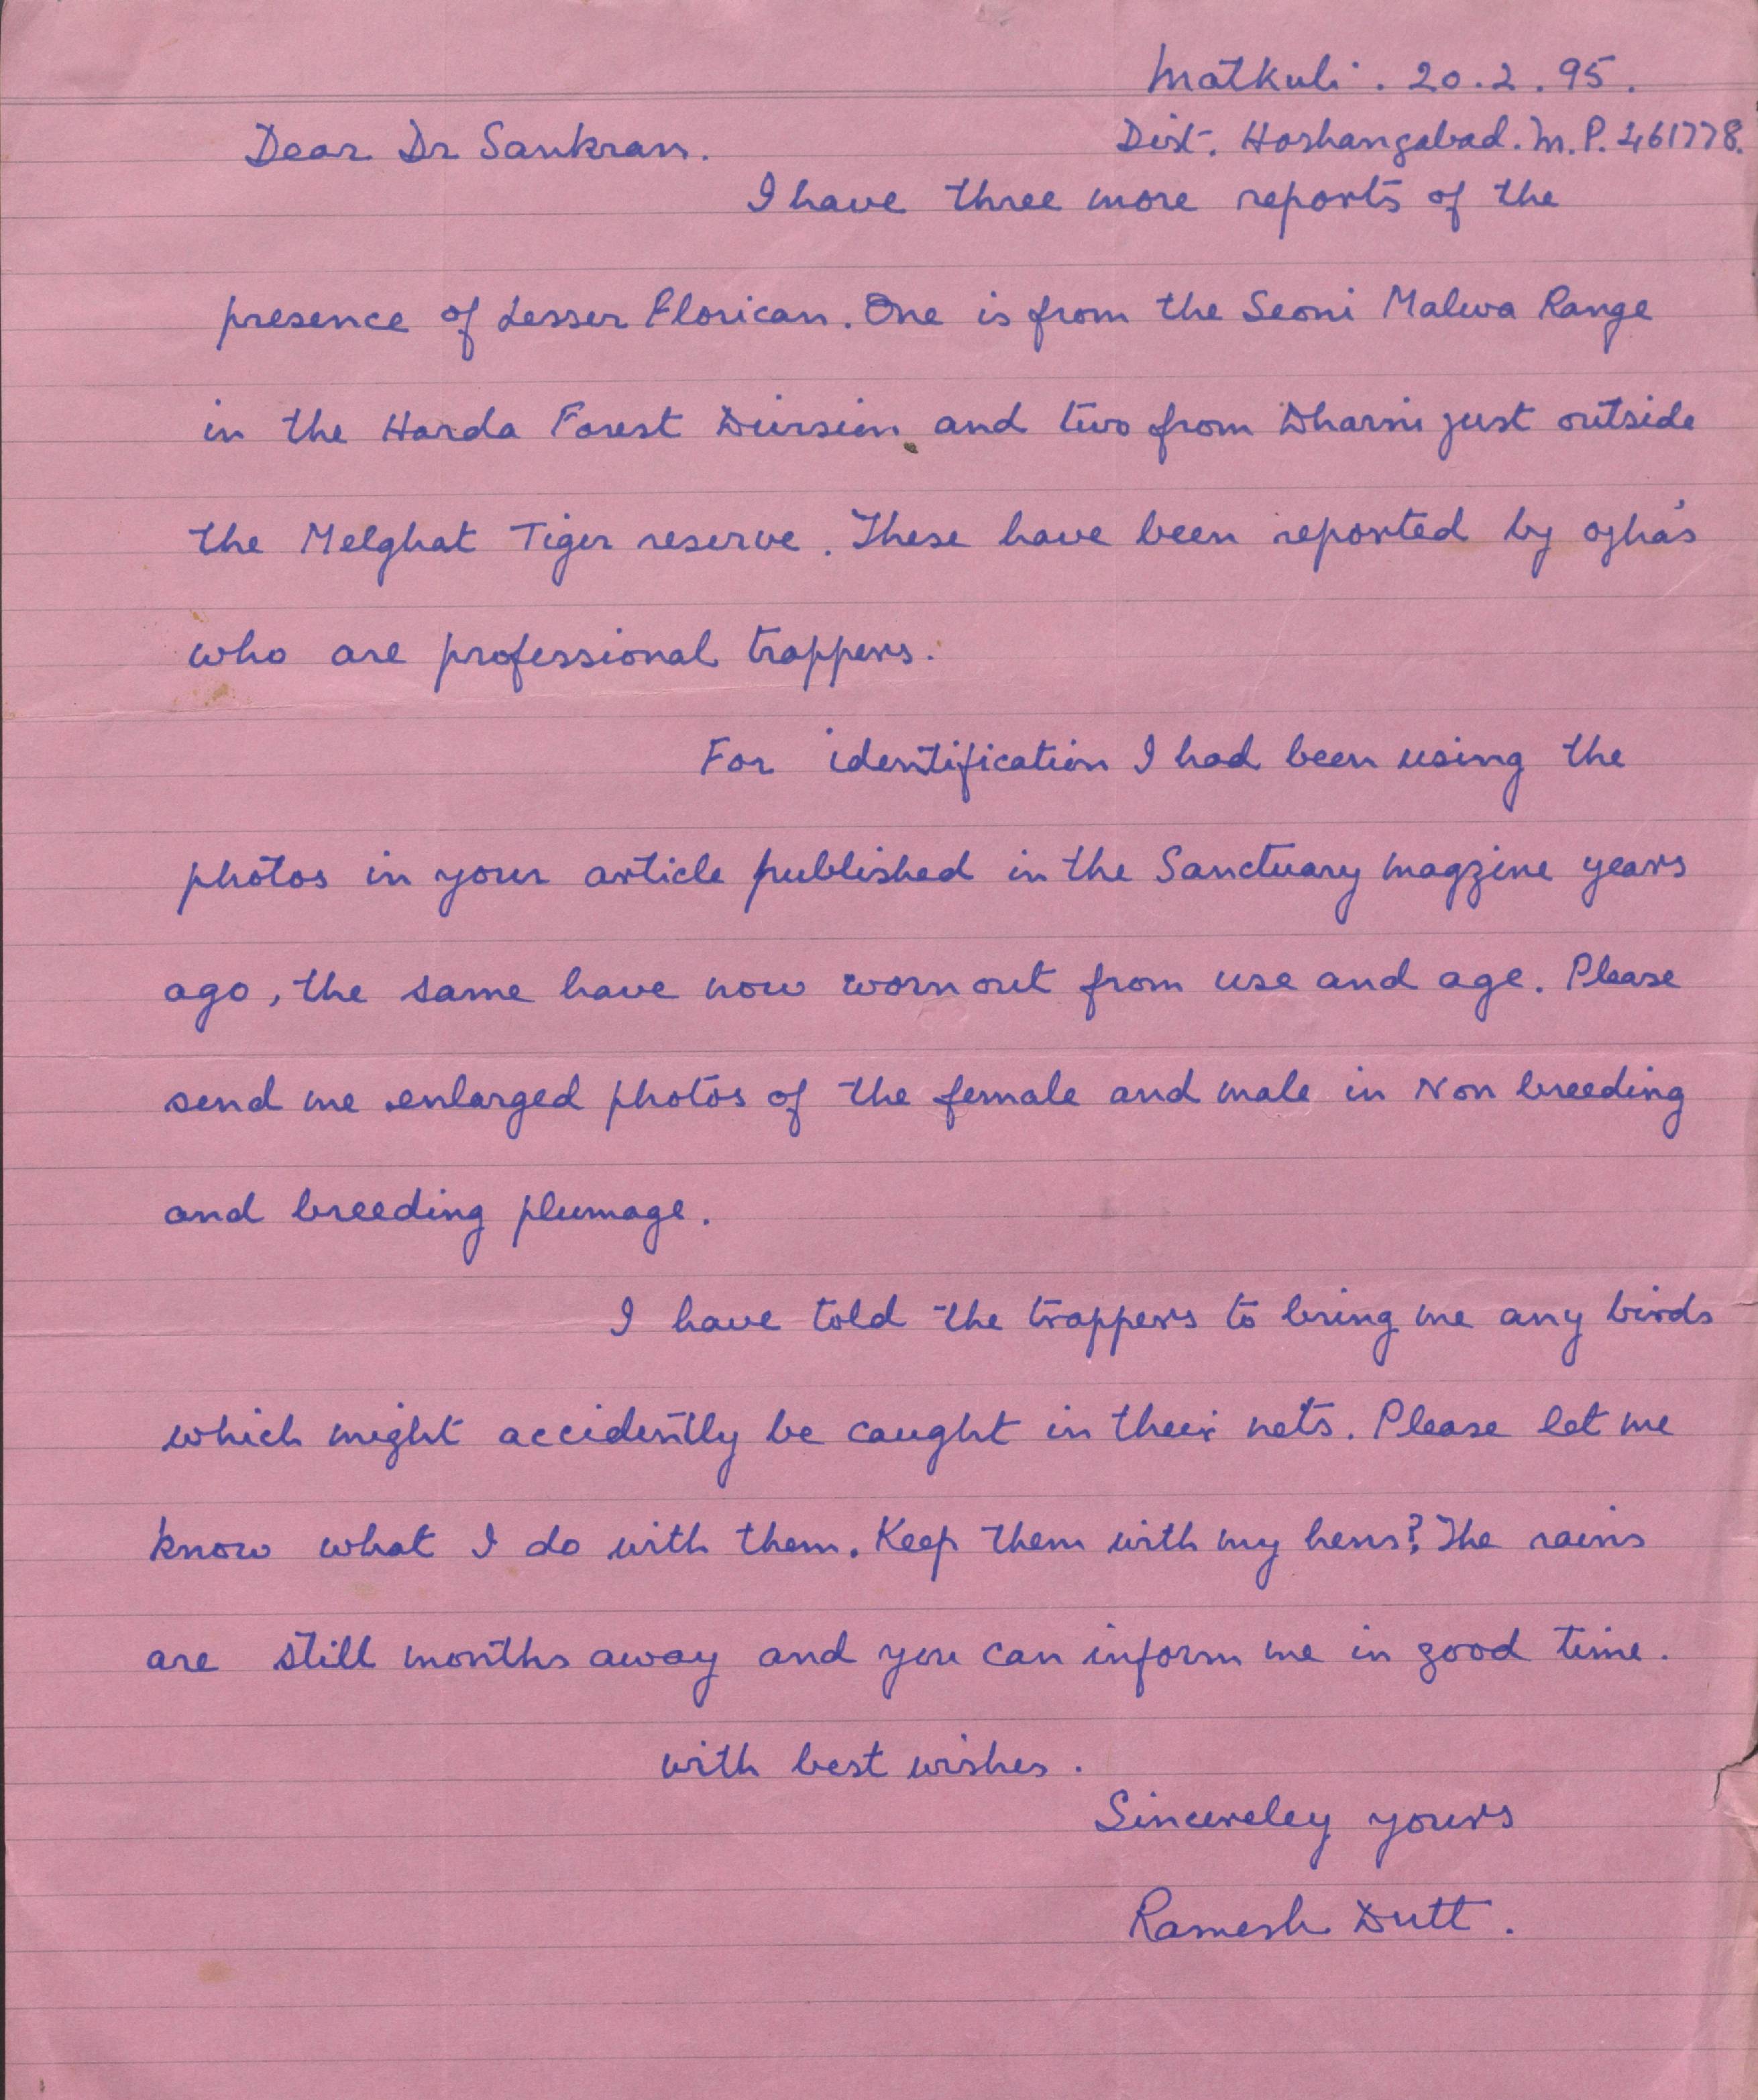 Matkuli. 20.2.95.
Dist. Hoshangabad. M.P. 461778.
Dear Dr Sankran.
I have three more reports of the
presence of Lesser Florican. One is from the Seoni Malwa Range
in the Harda Forest Divrsion and two from Dharni just outside
the Melghat Tiger reserve. These have been reported by ojha's
who are professional trappers.
For identification I had been using the
photos in your article published in the Sanctuary magzine years
ago, the same have now worn out from use and age. Please
send me enlarged photos of the female and male in Non breeding
and breeding plumage.
I have told the trappers to bring me any birds
which might accidently be caught in their nets. Please let me
know what I do with them. Keep them with my hens? The rains
are still months away and you can inform me in good time.
with best wishes.
Sincereley yours
Ramesh Dutt.